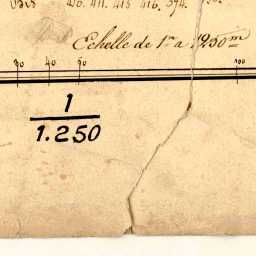 Bis 410. 411. 415 416. 574.
Echelle de 1m a 1250m
30 40 50 100
1
1.250